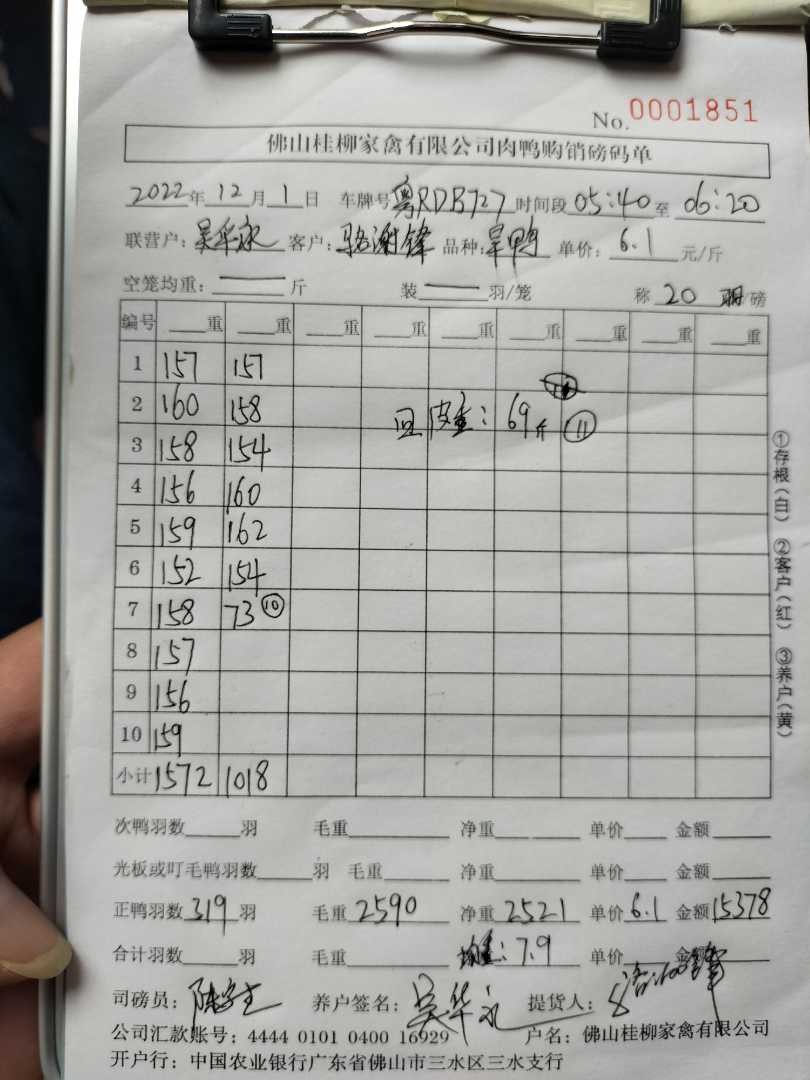 No. 0001851
佛山桂柳家禽有限公司肉鸭购销磅码单
2022年 12月 1日 车牌号 粤RDB727 时间段 05:40 至 06:20
联营户: 吴华永 客户: 骆谢锋 品种: 旱鸭 单价: 6.1 元/斤
空笼均重: — 斤 装 — 羽/笼 称 20 羽/磅
编号 重 重 重 重 重 重 重 重 重
1 157 157
2 160 158 回皮重: 69斤 ⑪
3 158 154
4 156 160
5 159 162
6 152 154
7 158 73 ⑩
8 157
9 156
10 159
小计 1572 1018
①存根(白) ②客户(红) ③养户(黄)
次鸭羽数 羽 毛重 净重 单价 金额
光板或叮毛鸭羽数 羽 毛重 净重 单价 金额
正鸭羽数 319 羽 毛重 2590 净重 2521 单价 6.1 金额 15378
合计羽数 羽 毛重 均重: 7.9 单价 金额
司磅员: 养户签名: 吴华永 提货人:
公司汇款账号: 4444 0101 0400 16929 户名: 佛山桂柳家禽有限公司
开户行: 中国农业银行广东省佛山市三水区三水支行